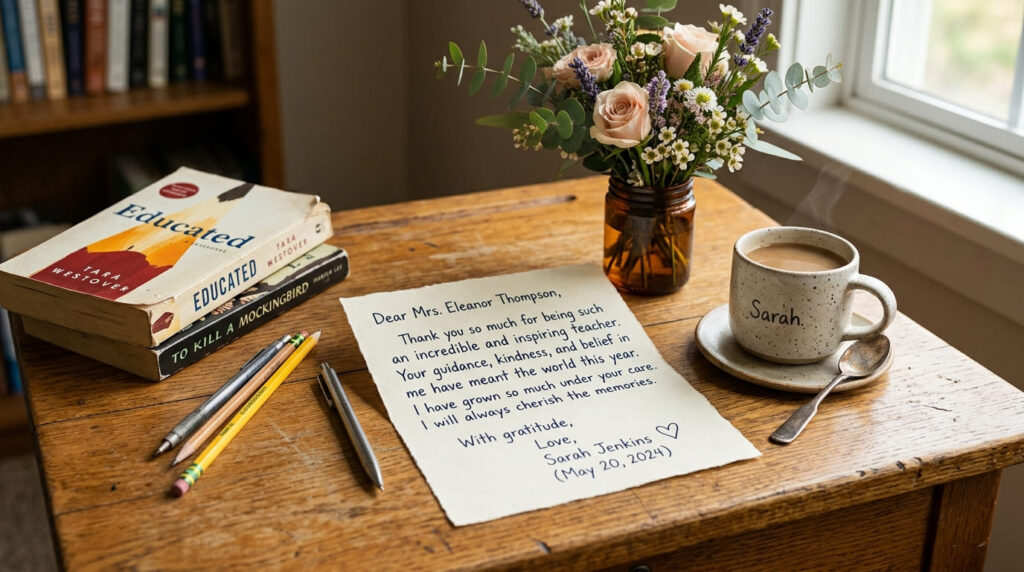 Educated
TARA
WESTOVER
EDUCATED
TARA
WESTOVER
TO KILL A MOCKINGBIRD
HARPER LEE
Dear Mrs. Eleanor Thompson,
Thank you so much for being such
an incredible and inspiring teacher.
Your guidance, kindness, and belief in
me have meant the world this year.
I have grown so much under your care.
I will always cherish the memories.
With gratitude,
Love,
Sarah Jenkins ♡
(May 20, 2024)
Sarah.